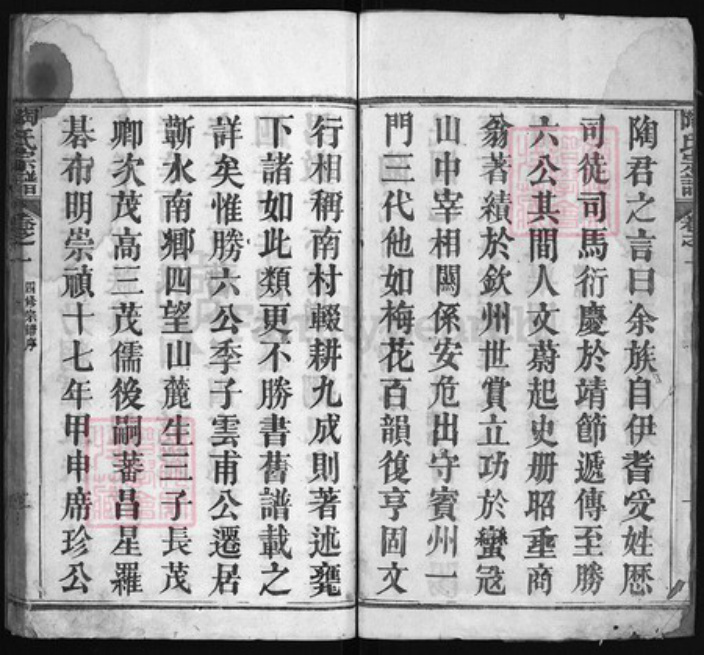 陶君之言曰余族自伊耆受姓歷
司徒司馬衍慶於靖節遞傳至勝
六公其間人文蔚起史册昭垂商
翁著績於欽州世賞立功於蠻寇
山中宰相關係安危出守賓州一
門三代他如梅花百韻復亨固文
行相稱南村輟耕九成則著述甕
下諸如此類更不勝書舊譜載之
詳矣惟勝六公季子雲甫公遷居
蘄水南鄉四望山麓生三子長茂
卿次茂高三茂儒後嗣蕃昌星羅
碁布明崇禎十七年甲申席珍公
陶氏宗譜 卷之一 四修宗譜序